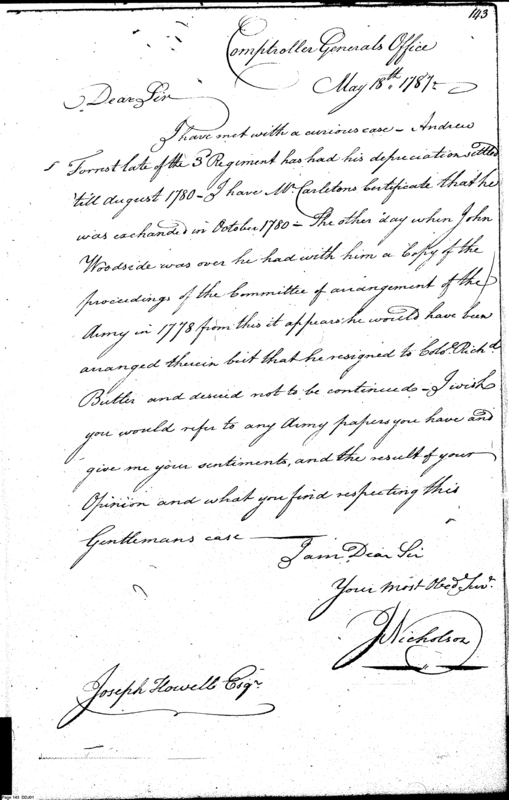 143
Comptroller Generals Office
May 18th. 1787
Dear Sir
I have met with a curious case - Andrew
Forrest late of the 3d Regiment has had his depreciation settled
till august 1780 - I have Mr Carletons Certificate that he
was exchanged in October 1780 - The other day when John
Woodside was over he had with him a Copy of the
proceedings of the Committee of arrangement of the
Army in 1778 from this it appears he would have been
arranged therein but that he resigned to Colo. Richd
Butler and desired not to be continued - I wish
you would refer to any Army papers you have and
give me your sentiments, and the result of your
Opinion and what you find respecting this
Gentlemans case
I am Dear Sir
Your most Obed. Servt.
JNicholson
Joseph Howell Esqr.
Page 143 DDJ01